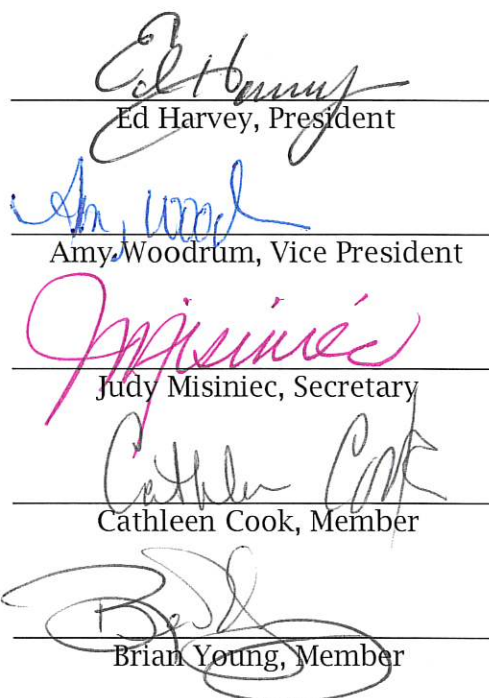 Ed Harvey
Ed Harvey, President
Amy Wood
Amy Woodrum, Vice President
JMisiniec
Judy Misiniec, Secretary
Cathleen Cook
Cathleen Cook, Member
Brian Young, Member